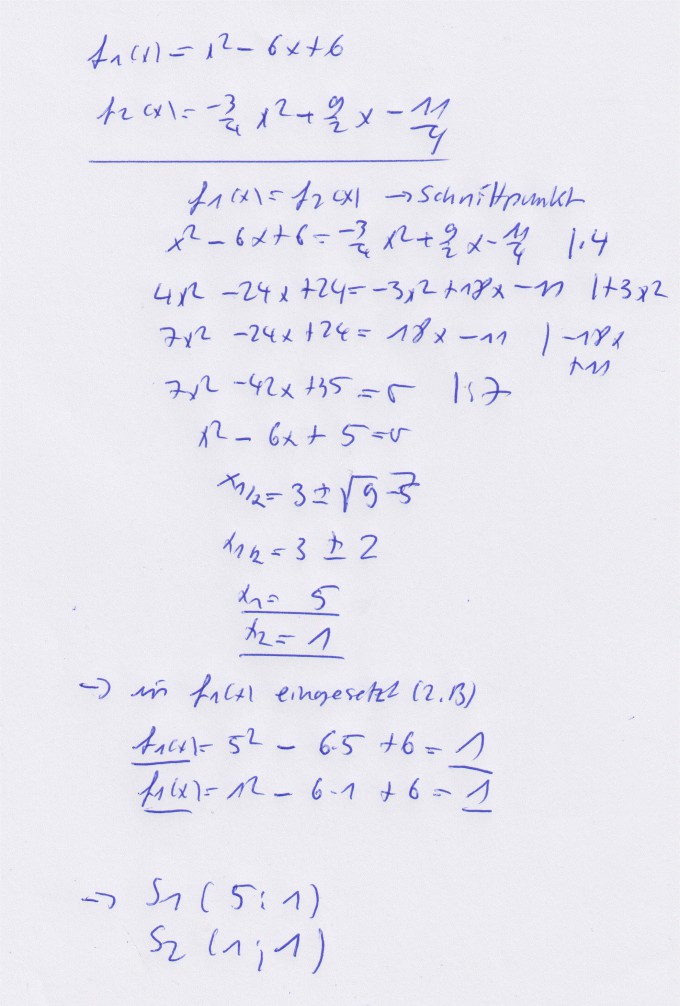 f1(x) = x² - 6x + 6
f2(x) = -3/4 x² + 9/2 x - 11/4
f1(x) = f2(x) → Schnittpunkt
x² - 6x + 6 = -3/4 x² + 9/2 x - 11/4 |·4
4x² - 24x + 24 = -3x² + 18x - 11 |+3x²
7x² - 24x + 24 = 18x - 11 | -18x
+11
7x² - 42x + 35 = 0 |:7
x² - 6x + 5 = 0
x1/2 = 3 ± √9-5
x1/2 = 3 ± 2
x1 = 5
x2 = 1
→ in f1(x) eingesetzt (z.B)
f1(x) = 5² - 6·5 + 6 = 1
f1(x) = 1² - 6·1 + 6 = 1
→ S1 (5; 1)
S2 (1; 1)